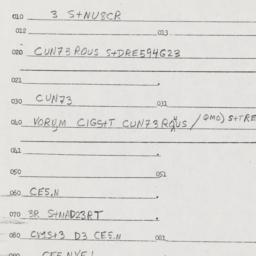 010 3 S+NU8CR
012 . 013
020 CUN73 ROUS S+DRE594G23
021 .
030 CUN73 031
040 VORUM CIGS+T CUN73 RQUS /
041 .
050 051
060 CE5,N .
070 3R S+NAD23RT .
080 D3 CE5,N 081